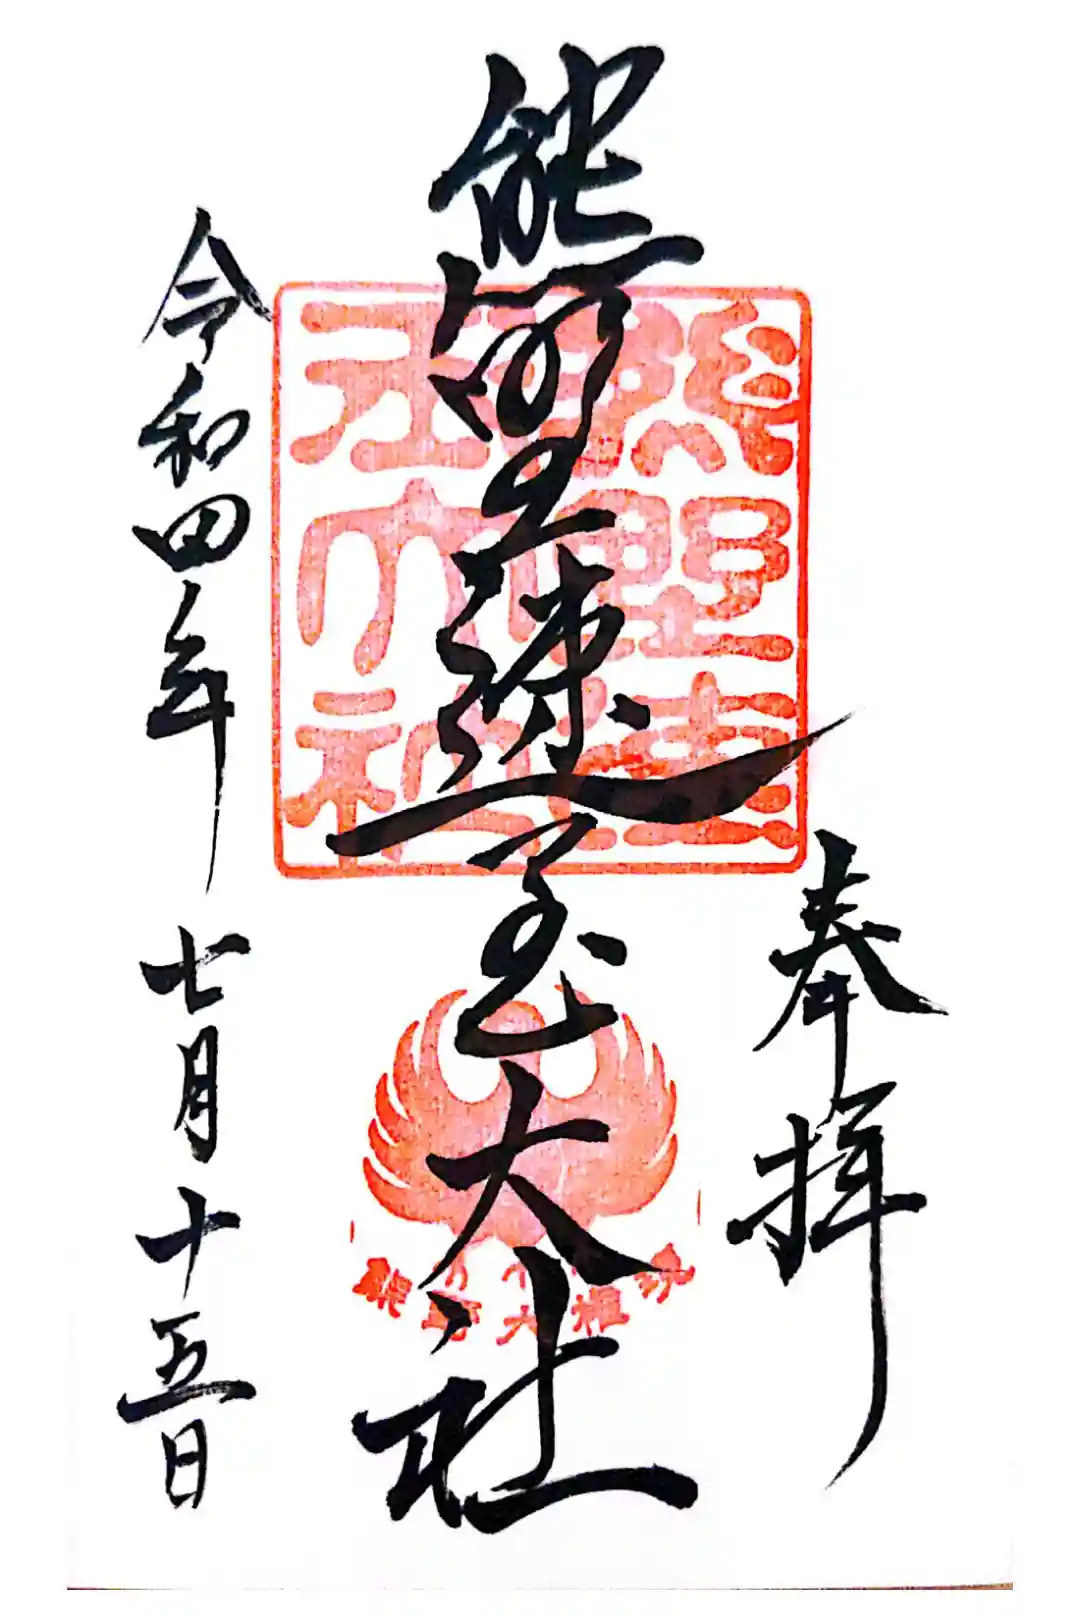 奉拝
熊野速玉大社
令和四年 七月十五日
熊野速
玉大社
熊野大権現